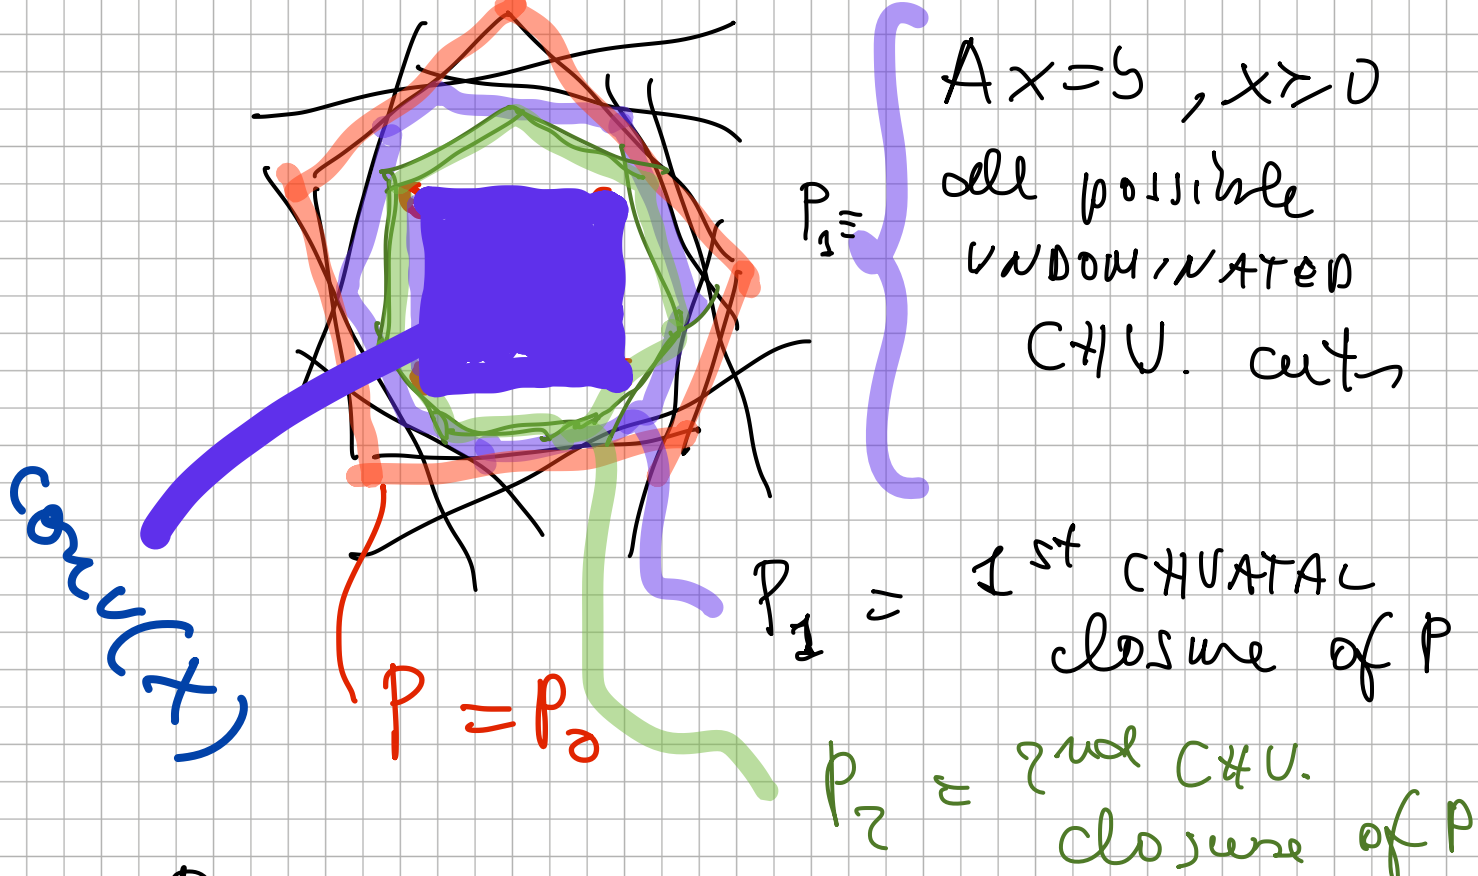 Ax=b, x≥0
all possible
P1≡
UNDOMINATED
CHV. cuts
conv(X)
P1 = 1st CHVATAL
closure of P
P=P0
P2 = 2nd CHV.
closure of P